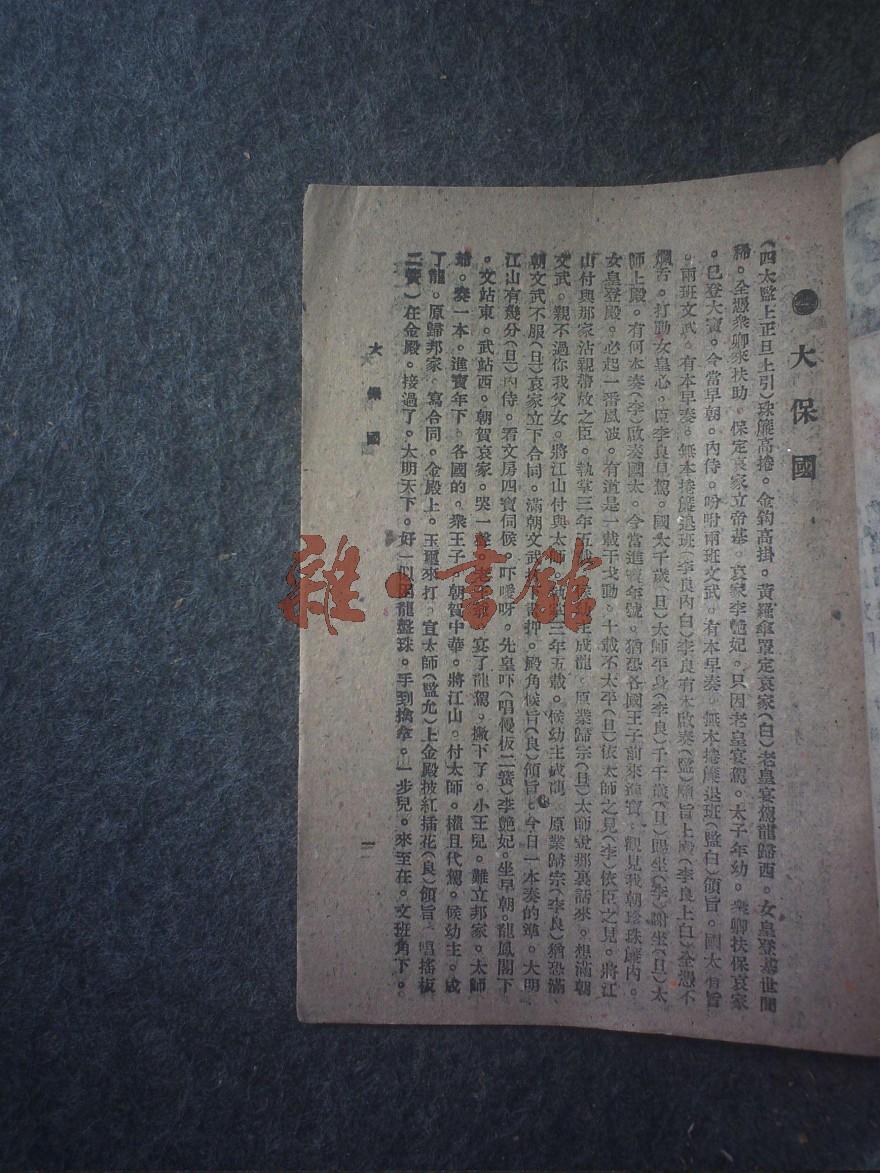 大保國
(四太監上正旦上引)珠簾高捲。金鈎高掛。黃羅傘罩定哀家(白)老皇宴駕龍歸西。女皇登基世間
稀。全憑衆卿來扶助。保定哀家立帝基。哀家李艷妃。只因老皇宴駕。太子年幼。衆卿扶保哀家
。已登大寶。今當早朝。內侍。吩咐兩班文武。有本早奏。無本捲簾退班(監白)領旨。國太有旨
。兩班文武。有本早奏。無本捲簾退班(李良內白)李良有本啟奏(監)隨旨上殿(李良上白)全憑不
爛舌。打動女皇心。臣李良見駕。國太千歲(旦)太師平身(李良)千千歲(旦)賜坐(李)謝坐(旦)太
師上殿。有何本奏(李)啟奏國太。今當進寶年號。猶恐各國王子前來進寶。觀見我朝珍珠簾內。
女皇登殿。必起一番風波。有道是一載干戈動。十載不太平(旦)依太師之見(李)依臣之見。將江
山付與那家沾親帶故之臣。執掌三年五載。候幼主成龍。原業歸宗(旦)太師說那裏話來。想滿朝
文武。親不過你我父女。將江山付與太師。執掌三年五載。候幼主成龍。原業歸宗(李良)猶恐滿
朝文武不服(旦)哀家立下合同。滿朝文武
押。殿角候旨(良)領旨。今日一本奏的準。大明
江山有幾分(旦)內侍。看文房四寶伺候。吓噯呀。先皇吓(唱慢板二簧)李艷妃。坐早朝。龍鳳閣下
。文站東。武站西。朝賀哀家。哭一聲。老王爺。宴了龍駕。撇下了。小王兒。難立邦家。太師
爺。奏一本。進寶年下。各國的。衆王子。朝賀中華。將江山。付太師。權且代駕。候幼主。成
了龍。原歸邦家。寫合同。金殿上。玉璽來打。宣太師(監允)上金殿披紅插花(良)領旨。唱搖板
二簧)在金殿。接過了。大明天下。好一似困龍盤珠。手到擒拿。一步兒。來至在。文班角下。
大保國
一
雜·書館